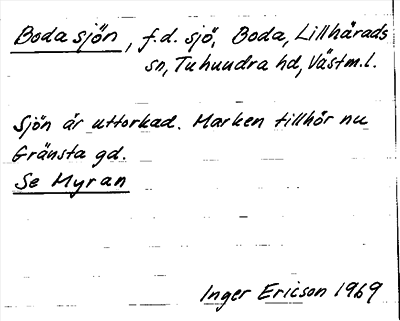 Bodasjön, f.d. sjö, Boda, Lillhärads
sn, Tuhundra hd, Västm.l.
Sjön är uttorkad. Marken tillhör nu
Gränsta gd.
Se Myran
Inger Ericson 1969